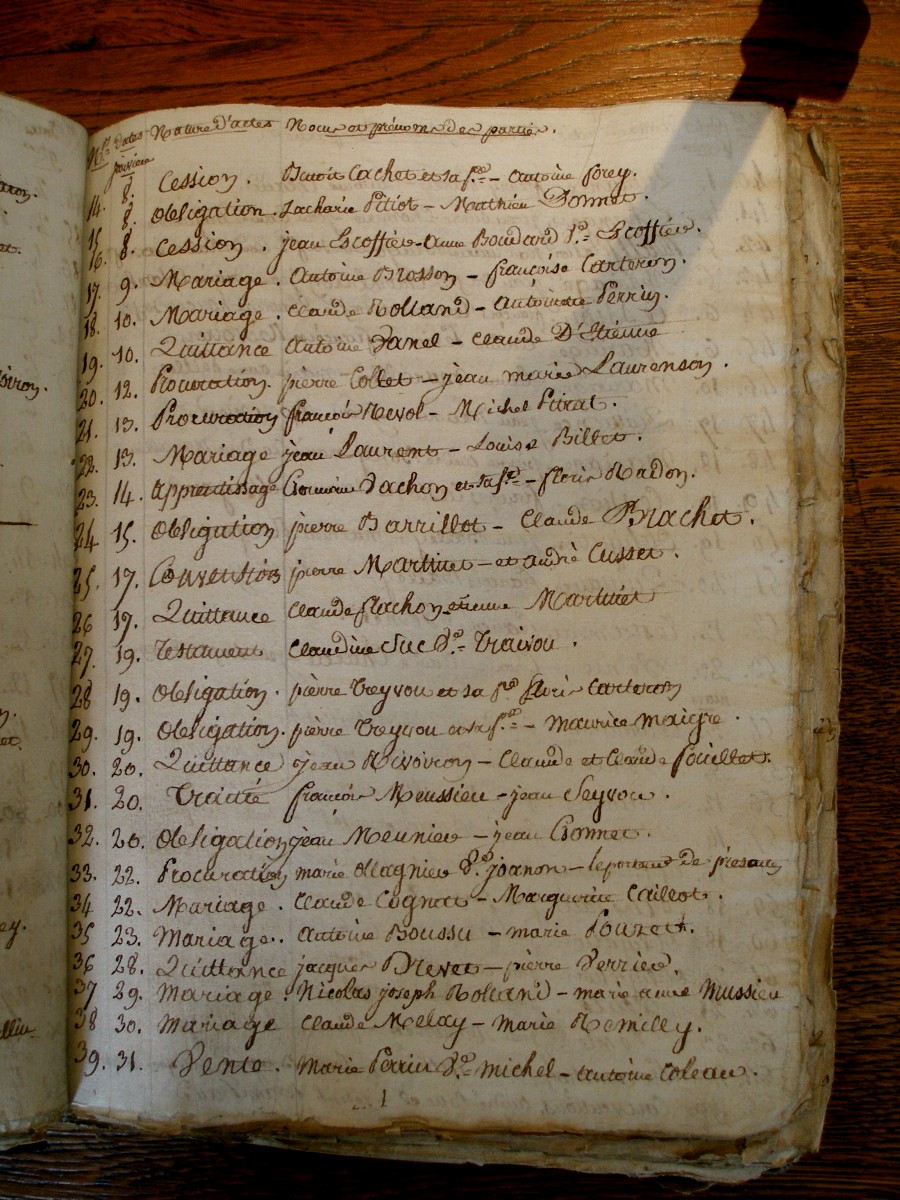 Nos dates Nature d'actes Noms et prénoms des parties.
janvier
14. 8. Cession. Benoit Cachet et sa fe. - Antoine forey.
15. 8. Obligation. Zacharie Pitiot - Mathieu Donnet.
16. 8. Cession. jean Escoffier - Anne Boudard Ve. Escoffier.
17. 9. Mariage. Antoine Brosson - françoise Carteron.
18. 10. Mariage. Claude Rolland - Antoinette Perrin.
19. 10. Quittance Antoine Vanel - Claude D'Etienne
20. 12. Procuration. pierre Collet - jean marie Laurenson.
21. 13. Procuration françois Revol - Michel Pitrat.
22. 13. Mariage jean Laurent - Louise Billet.
23. 14. apprentissage Germain Vachon et sa fe. - fleurie Nadon.
24 15. Obligation pierre Barrillot - Claude Brachet.
25. 17. Convention pierre Martinet - et andré Cusset.
26 17. Quittance Claude flachon - etienne Martinet
27. 19. Testament Claudine Suc Ve. Traivou.
28 19. Obligation. pierre Treyvou et sa fe fleurie Carteron
29. 19. Obligation. pierre Treyvou et sa fe. - maurice maigre.
30. 20. Quittance jean Rivoiron - Claude et Claude fouillet.
31. 20. Traité françois Meussieu - jean Seyvou.
32. 20. Obligation jean Meunier - jean Gonnet.
33. 22. Procuration marie Ollagnier Ve. joanon - le porteur de présantes
34 22. Mariage. Claude Cognet - Marguerite Caillot.
35 23. Mariage. antoine Boussu - marie Pouzet.
36 28. Quittance jacques Brevet - pierre Verrier.
37 29. Mariage. Nicolas joseph Rolland - marie anne Mussieu
38 30. Mariage Claude Melay - Marie Remilly.
39. 31. Vente. Marie Perrin Ve. michel - antoine Coleau.